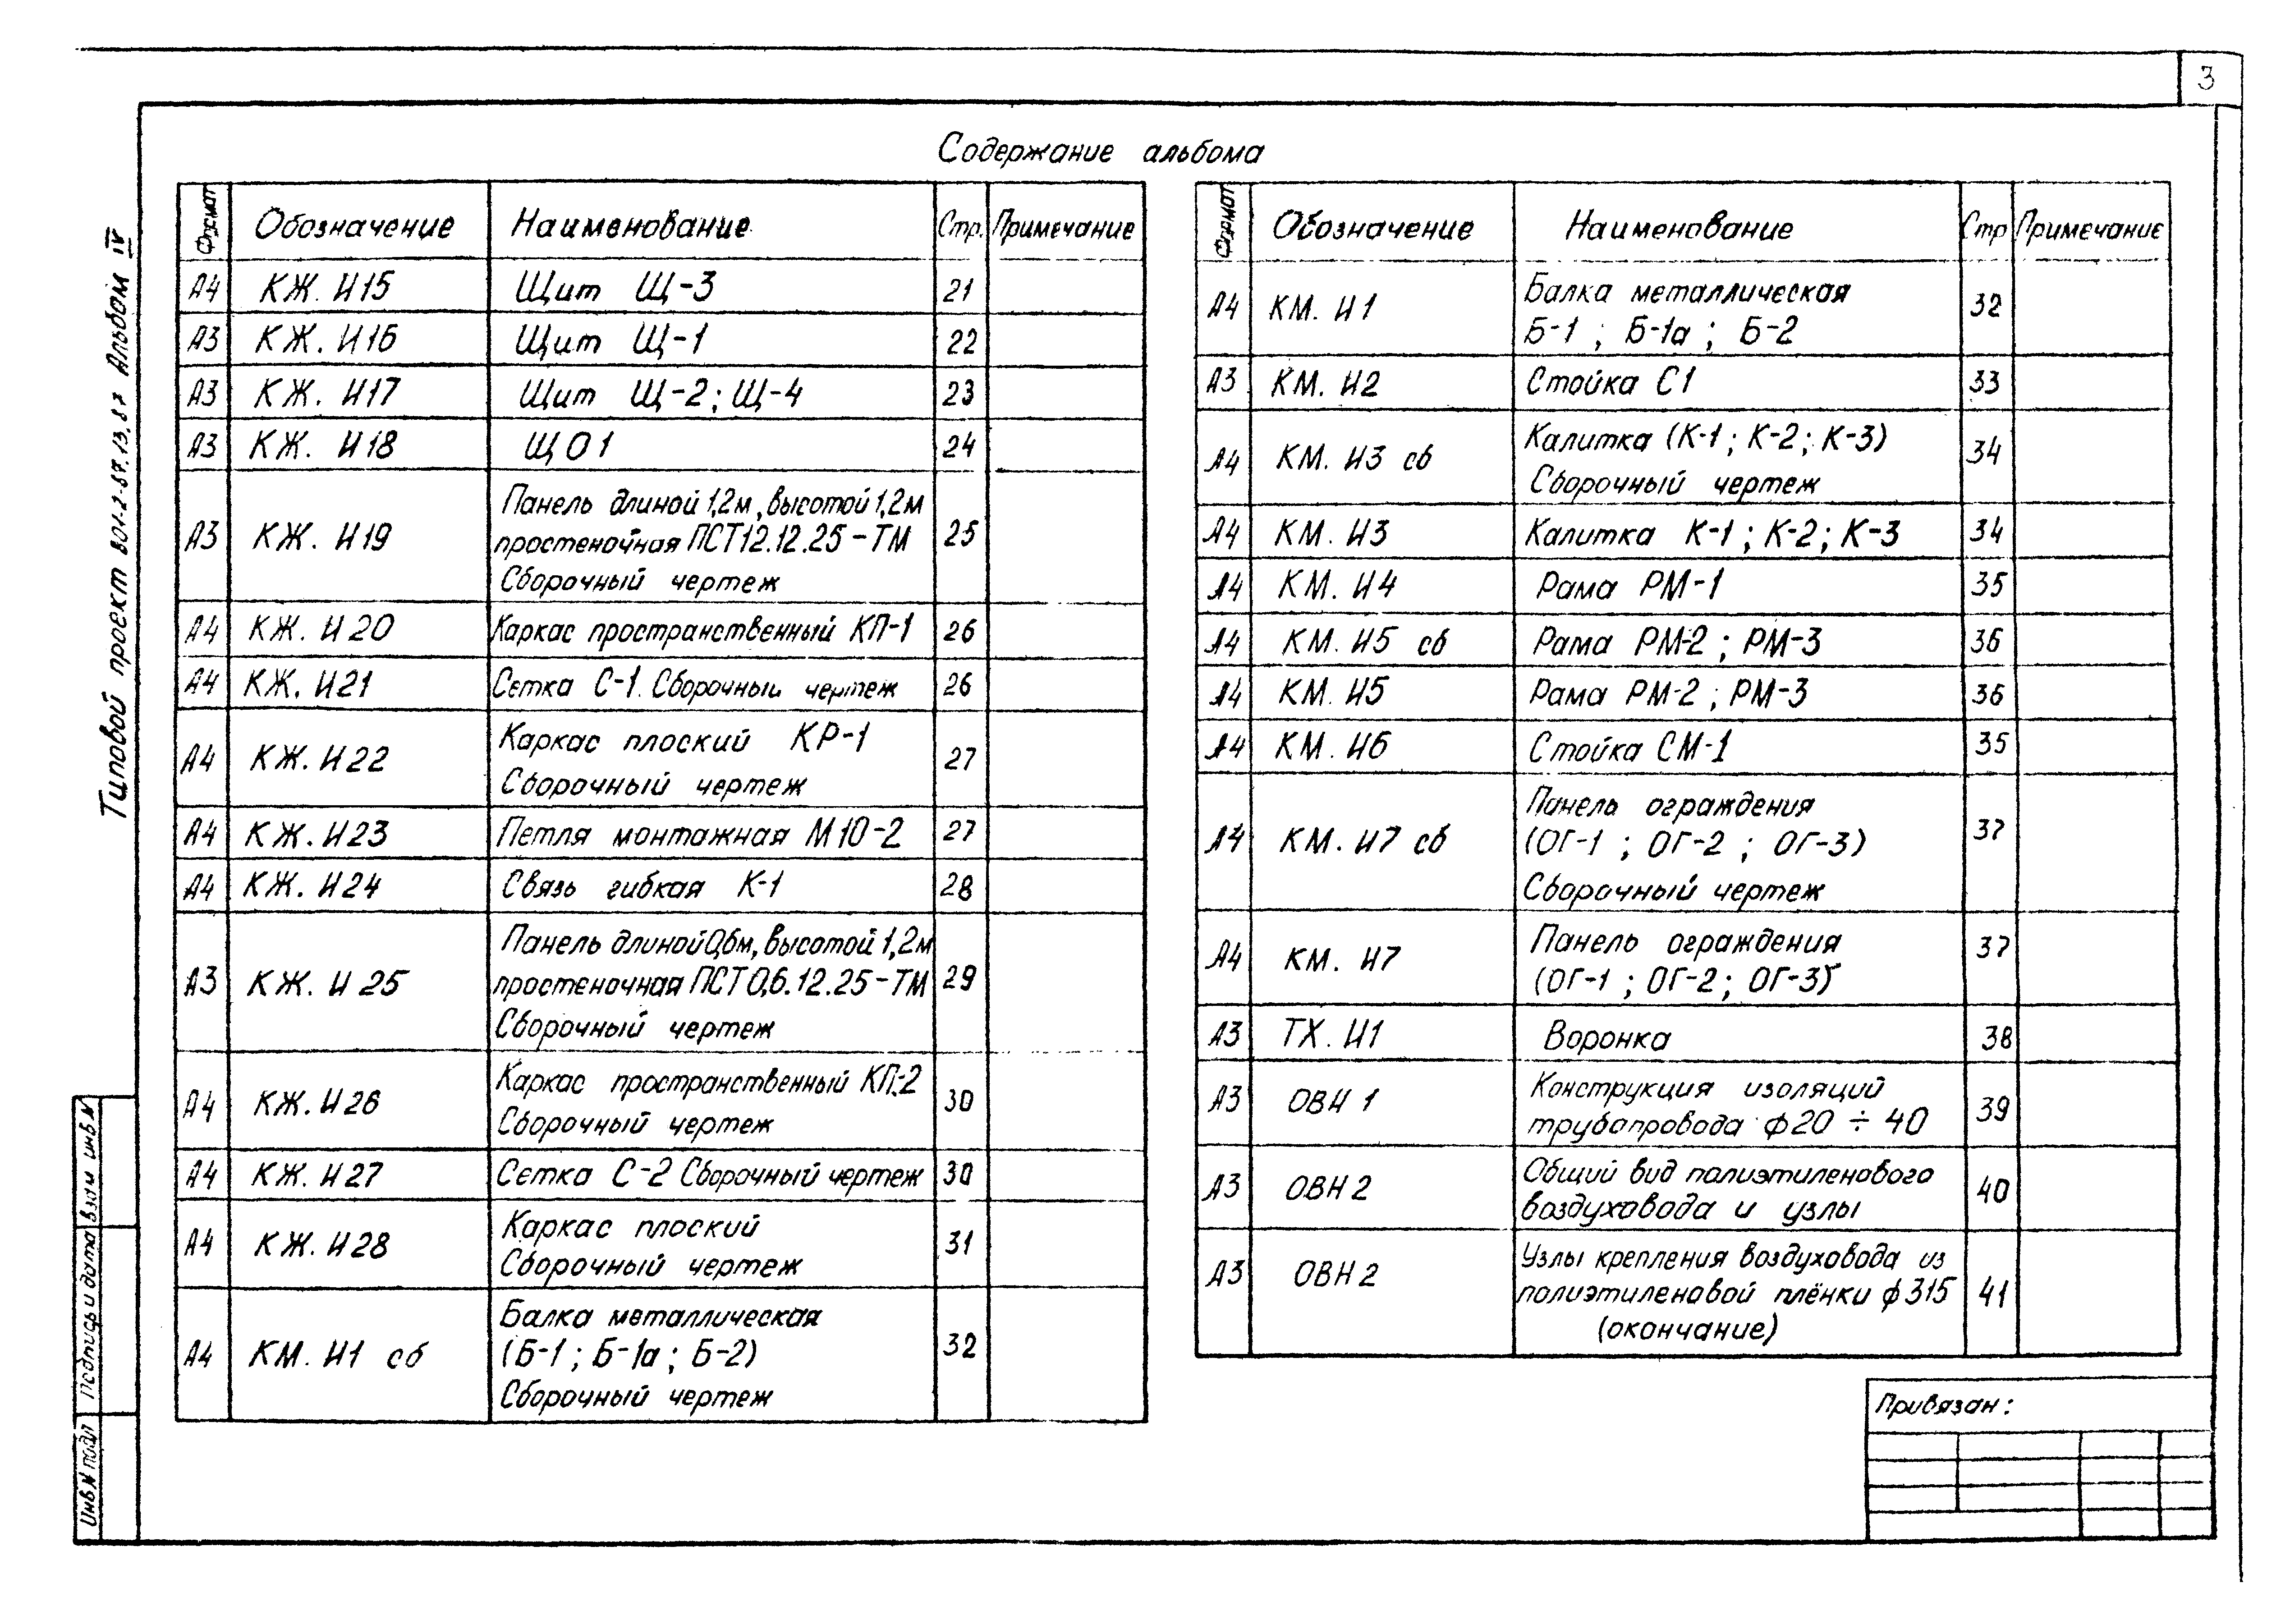 3
Содержание альбома
Типовой проект 801-2-87.13.87 Альбом IV
Формат Обозначение Наименование Стр. Примечание
А4 КЖ. И15 Щит Щ-3 21
А3 КЖ. И16 Щит Щ-1 22
А3 КЖ. И17 Щит Щ-2; Щ-4 23
А3 КЖ. И18 ЩО1 24
А3 КЖ. И19 Панель длиной 1,2м, высотой 1,2м
простеночная ПСТ12.12.25-ТМ 25
Сборочный чертеж
А4 КЖ. И20 Каркас пространственный КП-1 26
А4 КЖ. И21 Сетка С-1. Сборочный чертеж 26
А4 КЖ. И22 Каркас плоский КР-1 27
Сборочный чертеж
А4 КЖ. И23 Петля монтажная М10-2 27
А4 КЖ. И24 Связь гибкая К-1 28
А3 КЖ. И25 Панель длиной 0,6м, высотой 1,2м
простеночная ПСТ0,6.12.25-ТМ 29
Сборочный чертеж
А4 КЖ. И26 Каркас пространственный КП-2 30
Сборочный чертеж
А4 КЖ. И27 Сетка С-2 Сборочный чертеж 30
А4 КЖ. И28 Каркас плоский 31
Сборочный чертеж
А4 КМ. И1 сб Балка металлическая
(Б-1; Б-1а; Б-2) 32
Сборочный чертеж
Формат Обозначение Наименование Стр Примечание
А4 КМ. И1 Балка металлическая 32
Б-1; Б-1а; Б-2
А3 КМ. И2 Стойка С1 33
А4 КМ. И3 сб Калитка (К-1; К-2; К-3) 34
Сборочный чертеж
А4 КМ. И3 Калитка К-1; К-2; К-3 34
А4 КМ. И4 Рама РМ-1 35
А4 КМ. И5 сб Рама РМ-2; РМ-3 36
А4 КМ. И5 Рама РМ-2; РМ-3 36
А4 КМ. И6 Стойка СМ-1 35
А4 КМ. И7 сб Панель ограждения
(ОГ-1; ОГ-2; ОГ-3) 37
Сборочный чертеж
А4 КМ. И7 Панель ограждения 37
(ОГ-1; ОГ-2; ОГ-3)
А3 ТХ. И1 Воронка 38
А3 ОВН 1 Конструкция изоляций 39
трубопровода ф20 ÷ 40
А3 ОВН 2 Общий вид полиэтиленового 40
воздуховода и узлы
А3 ОВН 2 Узлы крепления воздуховода из
полиэтиленовой плёнки ф315 41
(окончание)
Привязан:
Взам инв N
Подпись и дата
Инв N подл